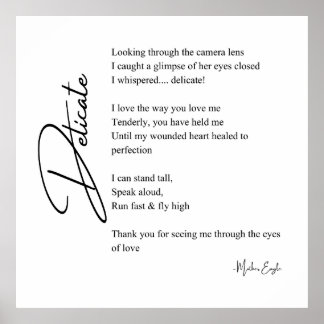 Delicate
Looking through the camera lens
I caught a glimpse of her eyes closed
I whispered.... delicate!
I love the way you love me
Tenderly, you have held me
Until my wounded heart healed to
perfection
I can stand tall,
Speak aloud,
Run fast & fly high
Thank you for seeing me through the eyes
of love